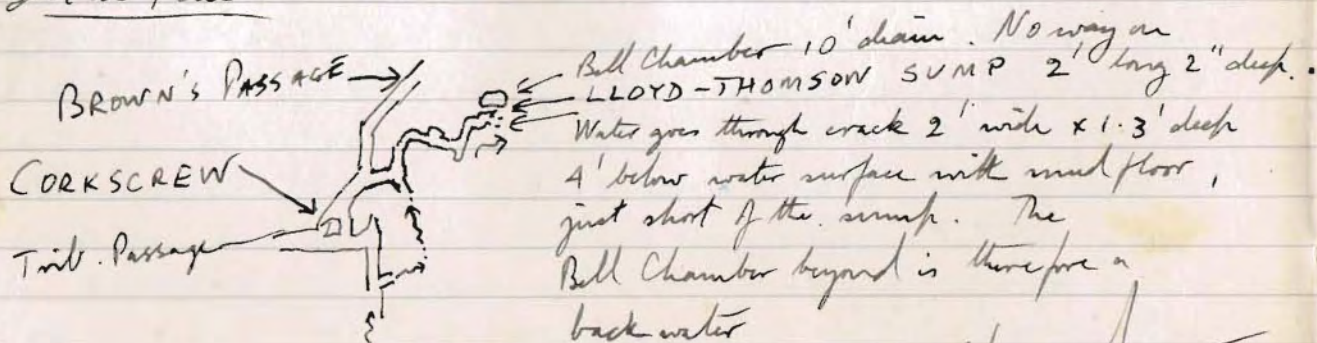 BROWN'S PASSAGE
CORKSCREW
Trib. Passage
Bell Chamber 10' diam. No way on
LLOYD-THOMSON SUMP 2' long 2" deep.
Water goes through crack 2' wide x 1.3' deep
4' below water surface with mud floor,
just short of the sump. The
Bell Chamber beyond is therefore a
back water